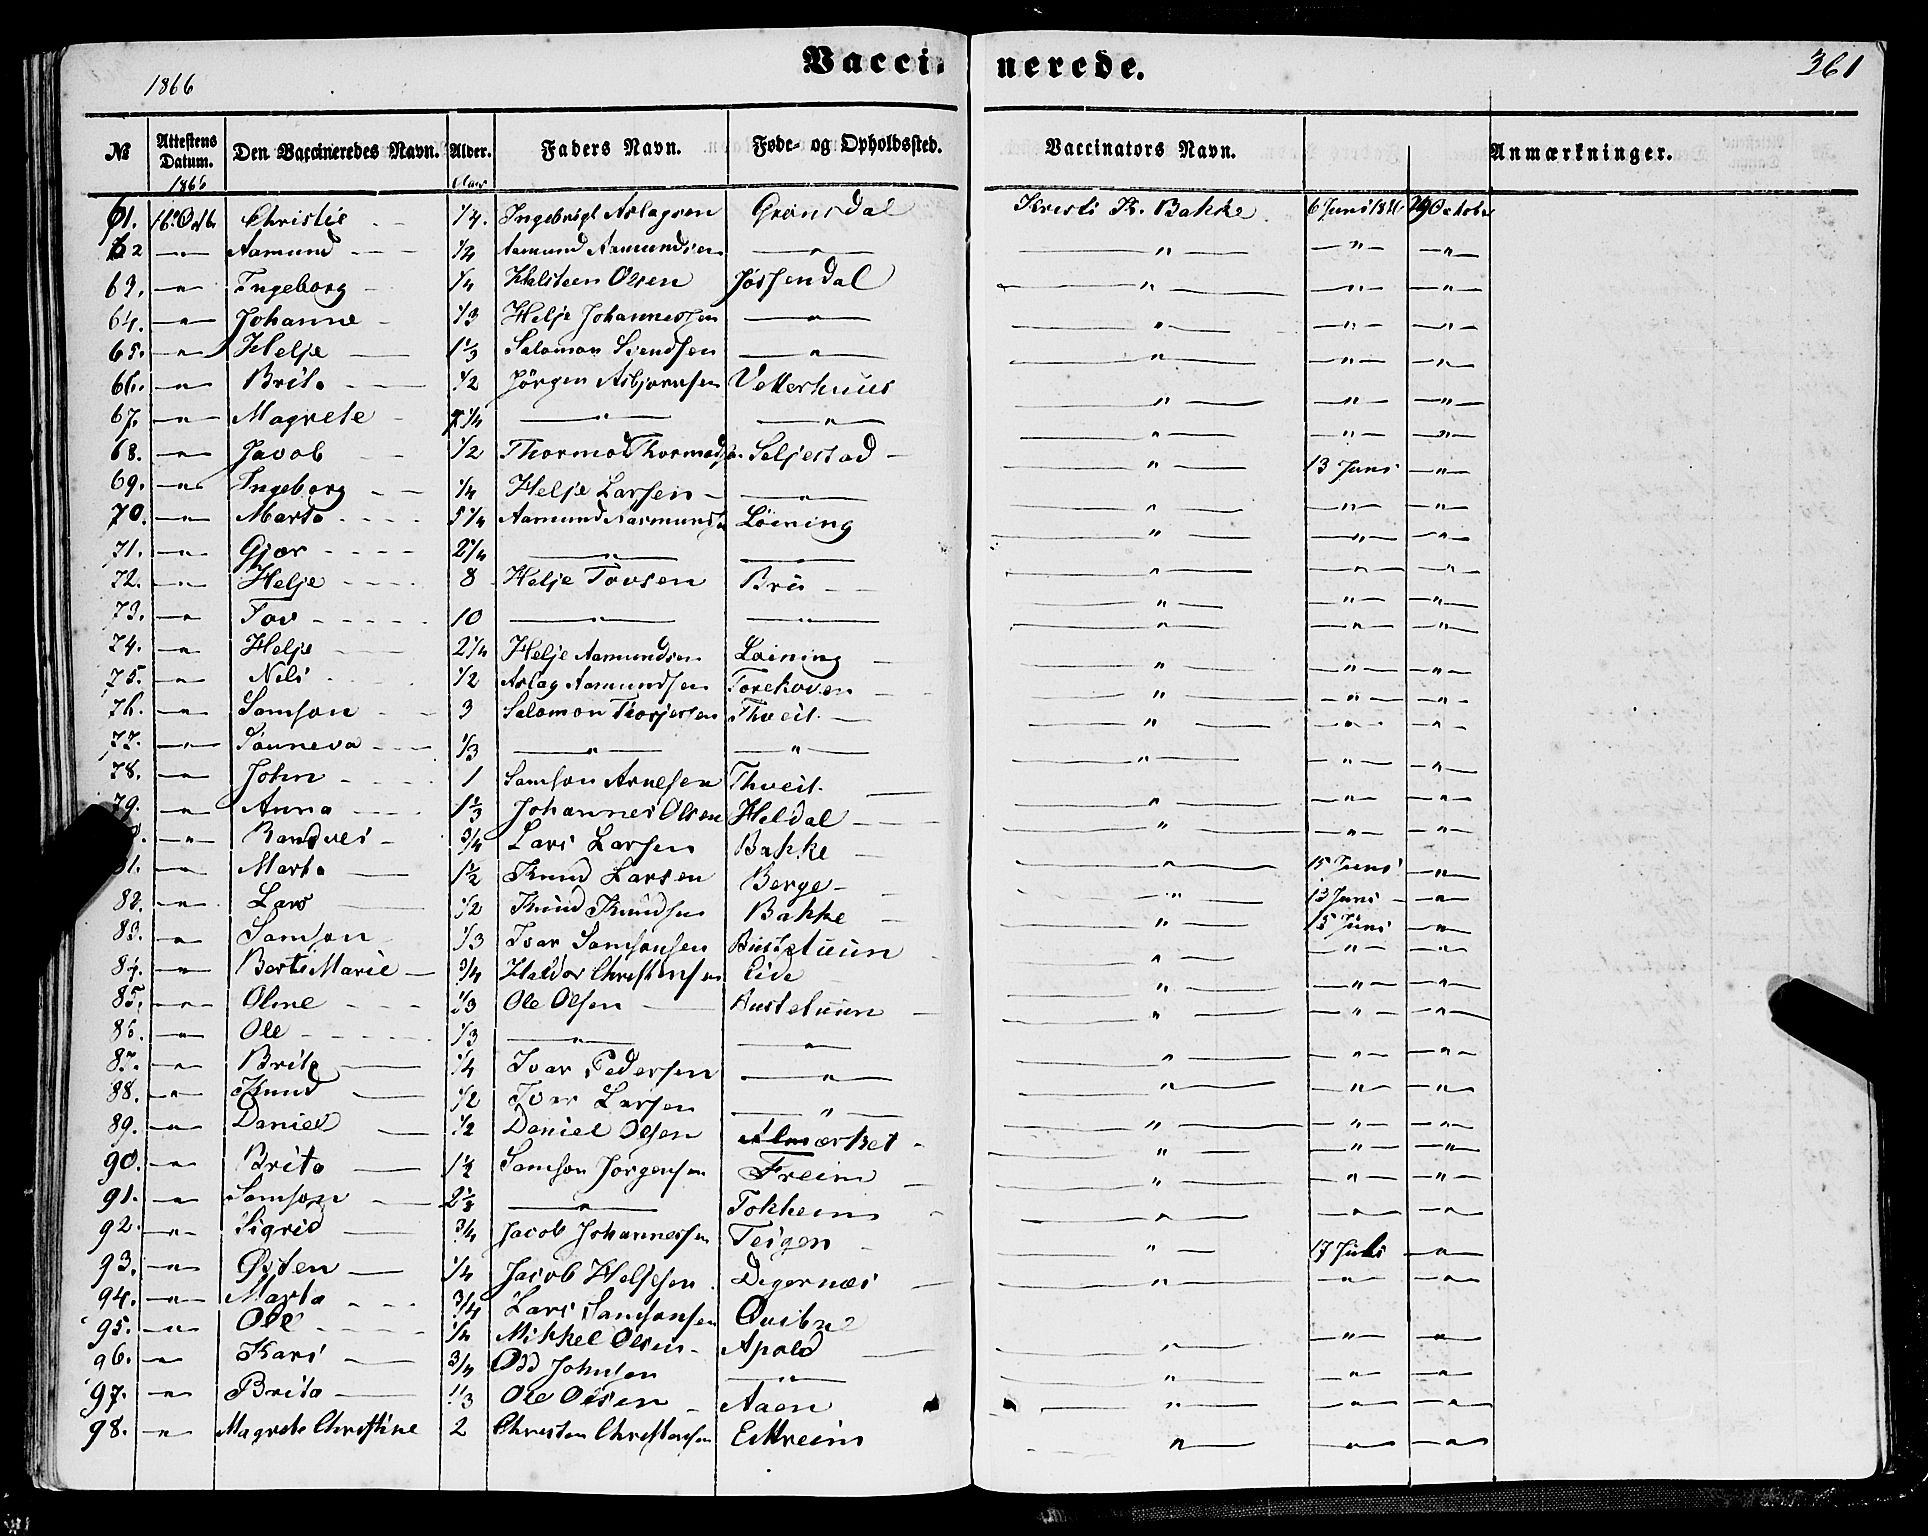 Vaccinerede.
1866
361
№ Attestens Datum. Den Vaccineredes Navn. Alder. Faders Navn. Føde- og Opholdssted. Vaccinators Navn. Anmærkninger.
1866 Aar
61. Christie 1/4. Ingebrigt Aslagsen Grønsdal Kristi K. Bakke 6 Juni 29 Octobr
62 " Aamund 1/4 Aamund Aamundsen " " " "
63. " Ingeborg 1/4 Halsteen Olsen Jøssendal " " "
64. " Johanne 1/3 Helje Johannessen " " " "
65. " Helje 1 1/3 Salomon Svendsen " " " "
66. " Brita 1/2 Jörgen Asbjørnsen Vetterhuus " " "
67. " Magrete 7 1/4 " " " " "
68. " Jacob 1/2 Thormod Thormods. Seljestad " 13 Juni "
69. " Ingeborg 1/4 Helje Larsen " " " "
70. " Marta 5 1/4 Aamund Aasmunds Löining " " "
71. " Gjør 2 1/4 " " " " "
72. " Helje 8 Helje Tovsen Bru " " "
73. " Tov 10 " " " " "
74. " Helje 2 1/4 Helje Aamundsen Løining " " "
75. " Nels 1/2 Aslag Aamundsen Torekoven " " "
76. " Samson 3 Salomon Thorjersen Thveit " " "
77. " Sønneva 1/3 " " " " "
78. " John 1 Samson Arnesen Thveit. " " "
79. " Anna 1 1/3 Johannes Olsen Heldal " " "
" Randvei 3/4 Lars Larsen Bakke " " "
81. " Marta 1 1/2 Knud Larsen Berge " 15 Juni "
82. " Lars 1/2 Knud Knudsen Bakke " 13 Juni "
83. " Samson 1/3 Ivar Samsonsen Busttuun " 15 Juni "
84. " Berte Marie 3/4 Haldor Christensen Eide " " "
85. " Oline 1/3 Ole Olsen Austetuun " " "
86. " Ole 1/3 " " " " "
87. " Brita 1/4 Ivar Pedersen " " " "
88. " Knud 1/2 Ivar Larsen " " " "
89. " Daniel 1/2 Daniel Olsen Almærket " " "
90. " Brita 1 1/2 Samson Jørgensen Freim " " "
91. " Samson 2 1/3 " Tokheim " " "
92. " Sigrid 3/4 Jacob Johannessen Teigen " 17 Juli "
93. " Østen 1/4 Jacob Heljesen Digernæs " " "
94. " Marta 3/4 Lars Samsonsen Qvitne
95. " Ole 1/4 Mikkel Olsen Apold " " "
96. " Kari 3/4 Odd Johnson " " " "
97. " Brita 1/3 Ole Olsen Aaen " " "
98. " Magrete Christine 2 Christen Christensen Eitreim " " "